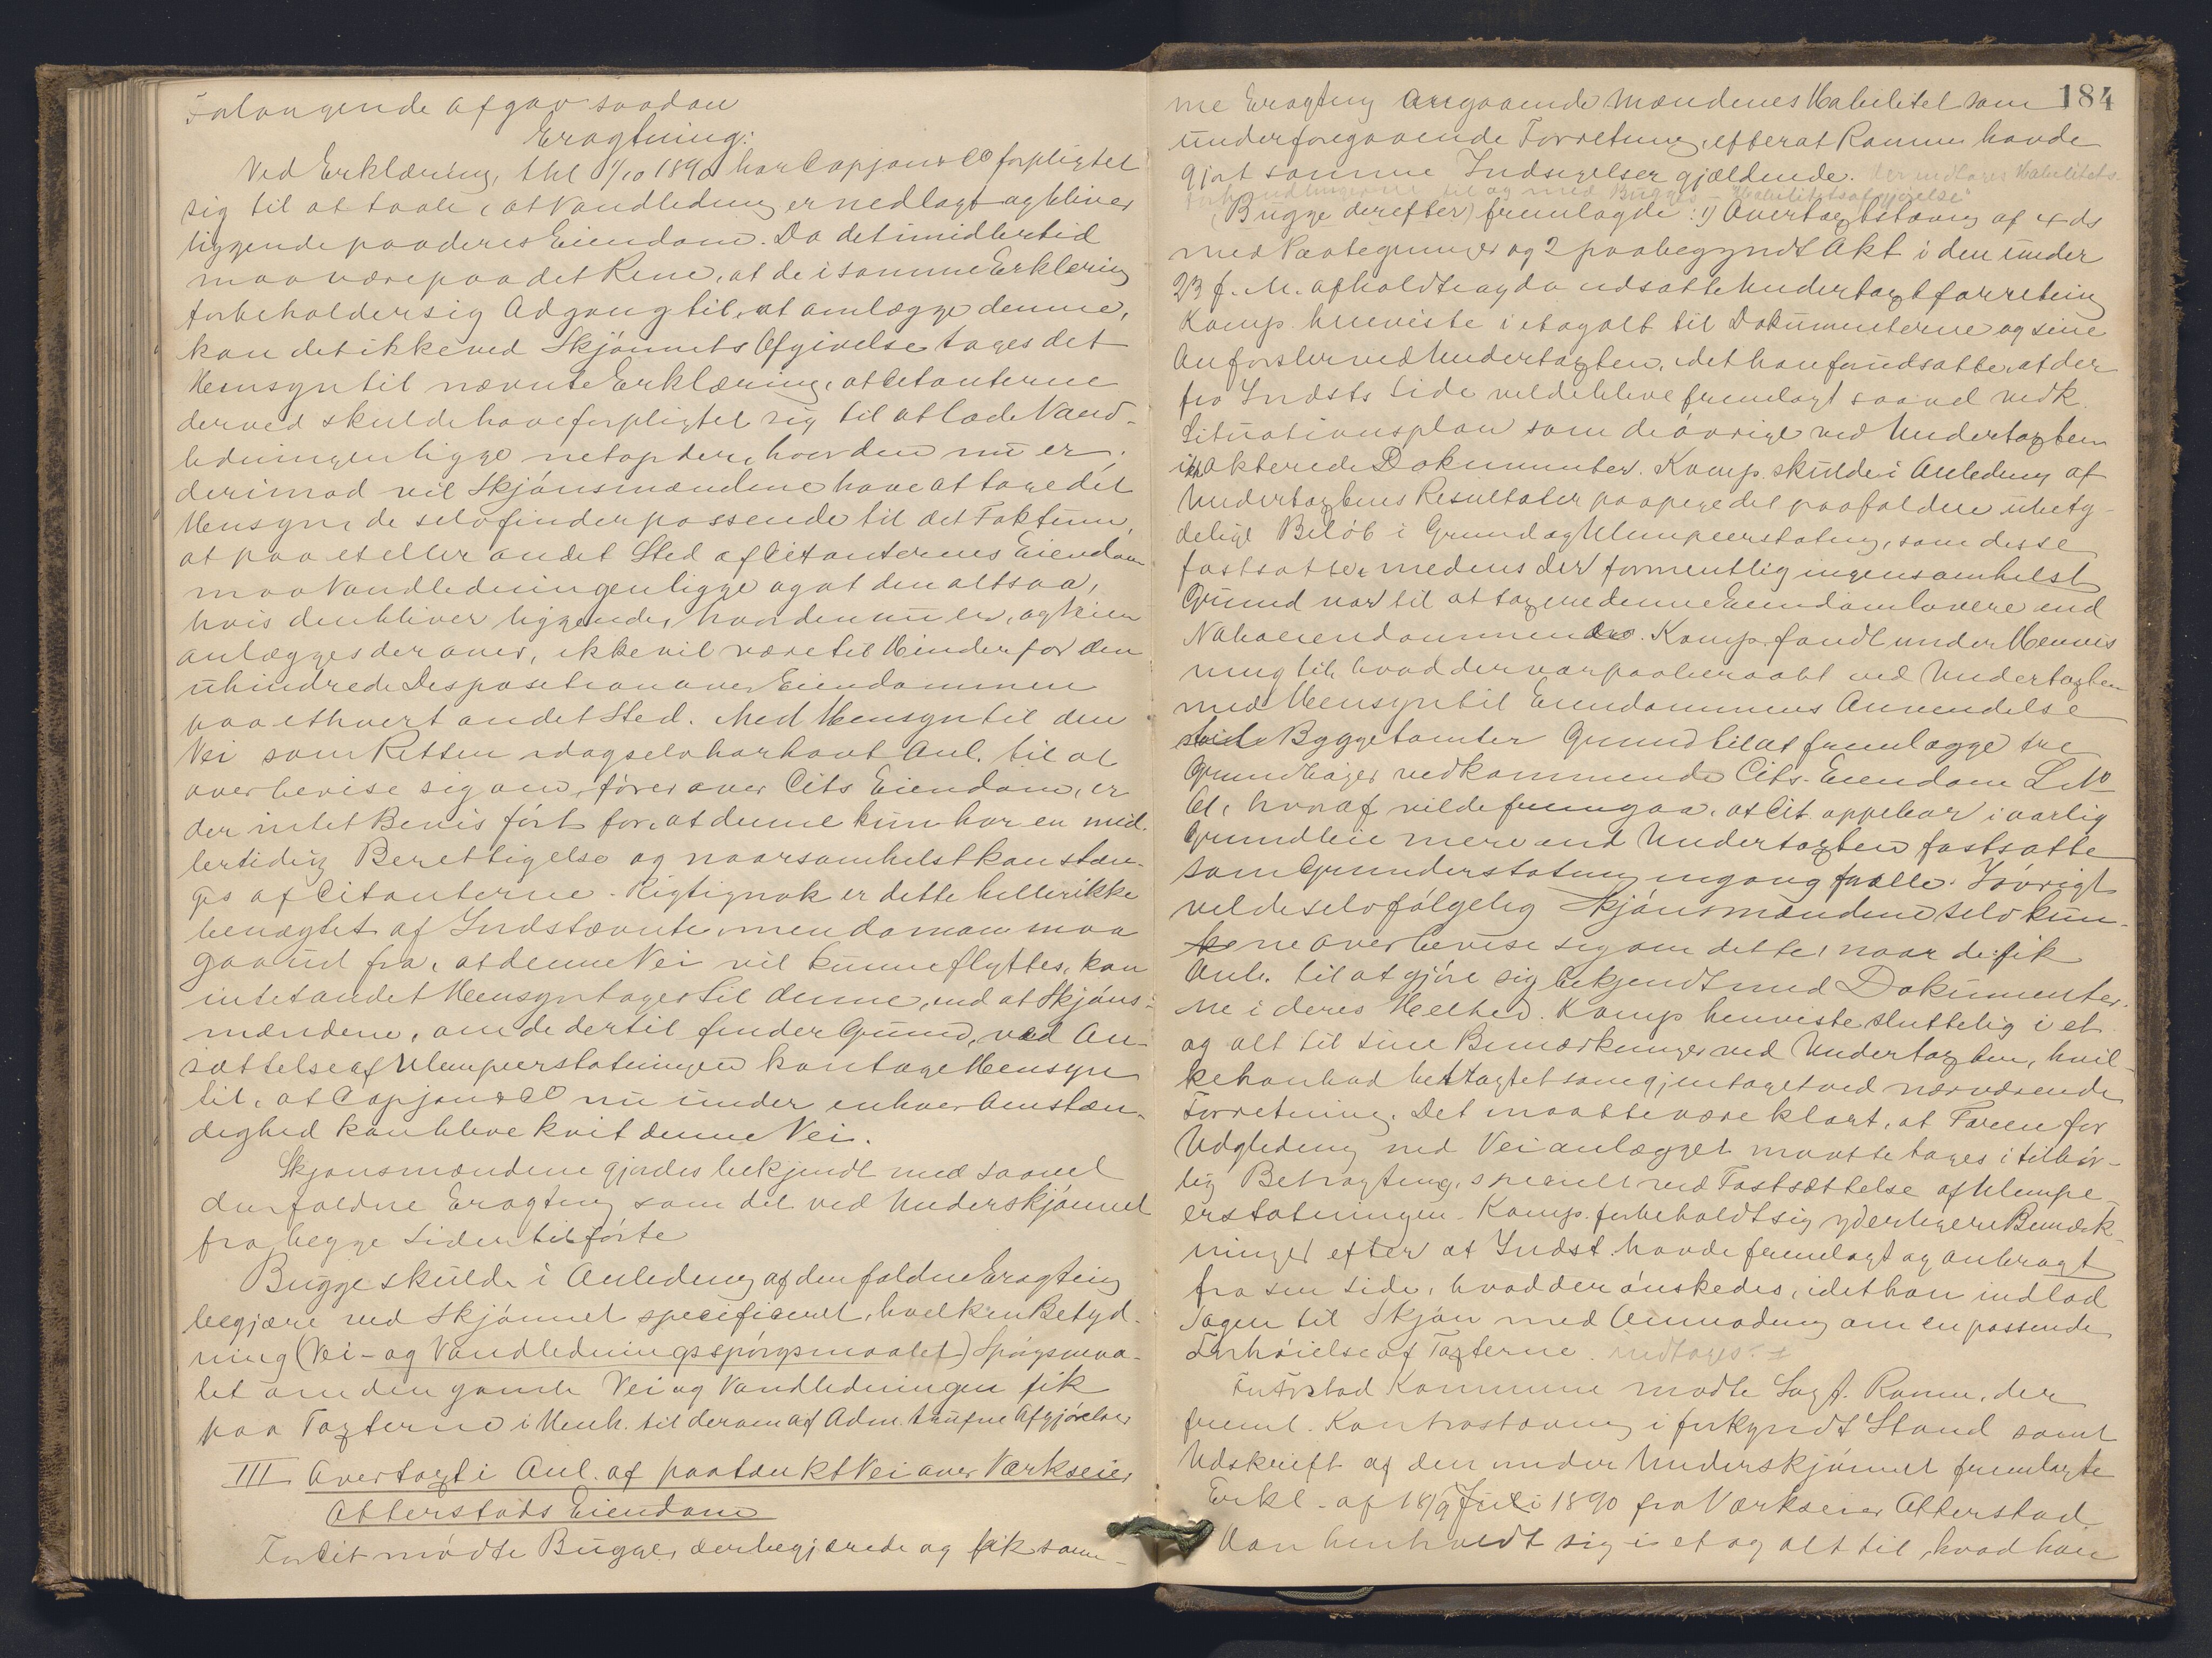 Forlangende afgav saadan
Eragtning:
Ved Erklæring, thl 1/10 1890 har Capjon & Co forpligtet
sig til at taale, at Vandledning er nedlagt og bliver
liggende paa deres Eiendom. Da det imidlertid
maa være paa det Rene, at de i samme Erklæring
forbeholder sig Adgang til, at omlægge denne,
kan det ikke ved Skjønnets Afgivelse tages det
Hensyn til nævnte Erklæring, at Citanterne
derved skulde have forpligtet sig til at lade Vand-
ledningen ligge netop der, hvor den nu er,
derimod vil Skjønsmændene have at tage det
Hensyn, de selv finder passende til det Faktum,
at paa et eller andet Sted af Citanternes Eiendom
maa Vandledningen ligge og at den altsaa,
hvis den bliver liggende, hvor den nu er, og Veien
anlægges derover, ikke vil være til Hinder for den
uhindrede Disposition over Eiendommen
paa ethvert andet Sted. Med Hensyn til den
Vei som Retten idag selv har havt Anl. til at
overbevise sig om, fører over Cits Eiendom, er
der intet Bevis ført for, at denne kun har en mid-
lertidig Berettigelse og naarsomhelst kan stæn-
ges af Citanterne. Rigtignok er dette heller ikke
benægtet af Indstævnte, men da man maa
gaa ud fra, at denne Vei vil kunne flyttes, kan
intet andet Hensyn tages til denne, end at Skjøns-
mændene, om de dertil finder Grund, ved An-
sættelse af Ulempeerstatningen kan tage Hensyn
til, at Capjon & Co nu under enhver Omstæn-
dighed kan blive kvit denne Vei.
Skjønsmændene gjordes bekjendt med saavel
den faldne Eragtning som det ved Underskjønnet
fra begge Sider tilførte
Bugge skulde i Anledning af den faldne Eragtning
begjære ved Skjønnet specificeret, hvilken Betyd-
ning (Vei- og Vandledningsspørgsmaalet) Spørgsmaa-
let om den gamle Vei og Vandledningen fik
paa Taxterne i Henh. til derom af Adm. trufne Afgjørelser
III Overtaxt i Anl. af paatænkt Vei over Værkseier
Atterstads Eiendom
For Cit mødte Bugge, der begjærede og fik sam-
184
me Eragtning angaaende Mændenes Habilitet som
under foregaaende Forretning, efterat Ramm havde
gjort samme Indsigelser gjældende. Her indtages Habilitets-
forhandlingerne til og med Bugges - Habilitetsafgjørelse
(Bugge derefter) fremlagde: 1) Overtaxtstævning af 4 ds
med Paategninger og 2 paabegyndt Akt i den under
23 f. M. afholdte og da udsatte Undertaxtforretning
Komp. henviste i et og alt til Dokumenterne og sine
Anførsler ved Undertaxten, idet han forudsatte, at der
fra Indsts Side vilde blive fremlagt saavel vedk.
Situationsplan som de øvrige ved Undertaxten
ikke akterede Dokumenter. Komp. skulde i Anledning af
Undertaxtens Resultater paapege det paafaldne ubety-
delige Beløb i Grund og Ulempeerstatning, som disse
fastsatte, medens der formentlig ingensomhelst
Grund var til at taxere denne Eiendom lavere end
Naboeiendommene. Komp. fandt under Henvis-
ning til, hvad der var paaberaabt ved Undertaxten
med Hensyn til Eiendommens Anvendelse
til Byggetomter Grund til at fremlægge tre
Grundbøger vedkommende Cits. Eiendom L. No
61, hvoraf vilde fremgaa, at Cit. oppebar i aarlig
Grundleie mere end Undertaxten fastsatte
som Grunderstatning engang for alle. Iøvrigt
vilde selvfølgelig Skjønsmændene selv kun-
ne overbevise sig om dette, naar de fik
Anl. til at gjøre sig bekjendt med Dokumenter-
ne i deres Helhed. Komp henviste sluttelig i et
og alt til sine Bemærkninger ved Undertaxten, hvil-
ke han bad betragtet som gjentaget ved nærværende
Forretning. Det maatte være klart, at Faren for
Udglidning ved Veianlægget maatte tages i tilbør-
lig Betragtning, specielt ved Fastsættelse af Ulempe-
erstatningen. Komp. forbeholdt sig yderligere Bemærk-
ninger efter at Indst. havde fremlagt og anbragt
fra sin Side, hvad der ønskedes, idet han indlod
Sagen til Skjøn med Anmodning om en passende
Forhøielse af Taxterne. indtages.
For Kommune mødte Sagf. Ramm, der
freml. Kontrastævning i forkyndt Stand samt
Udskrift af den under Underskjønnet fremlagte
Erkl. af 18/9 Juli 1890 fra Værkseier Atterstad.
Han henholdt sig i et og alt til, hvad han